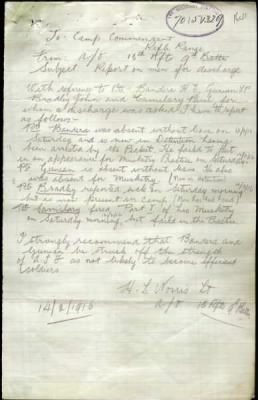 To:- Camp Commandant
Rifle Range
From:- A/O 15th Rfts 9th Battn
Subject Report on men for discharge
With reference to Ptes Bandera H E, Gunson
Bradly John and Camulary Paul for
whom a discharge was asked I then report
as follows:-
Pte Bandera was absent without leave on
Saturday and is now in Detention having
been arrested by the Picket. He failed to put
in an appearance for Musketry Practice on Saturday.
Pte Gunson is absent without leave & also
was absent for Musketry.
Pte Bradly reported sick on Saturday morning
but is now present in Camp
Pte Camulary fired Part I of his Musketry
on Saturday morning, but failed in the
I strongly recommend that Bandera and
Gunson be struck off the strength
of A.I.F as not likely to become efficient
soldiers
H. L. Norris Lt
14/2/1916 A/O 15 Rfts 9th Battn